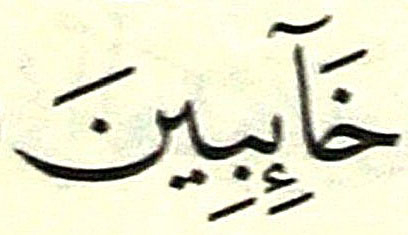 خَآئِبِينَ